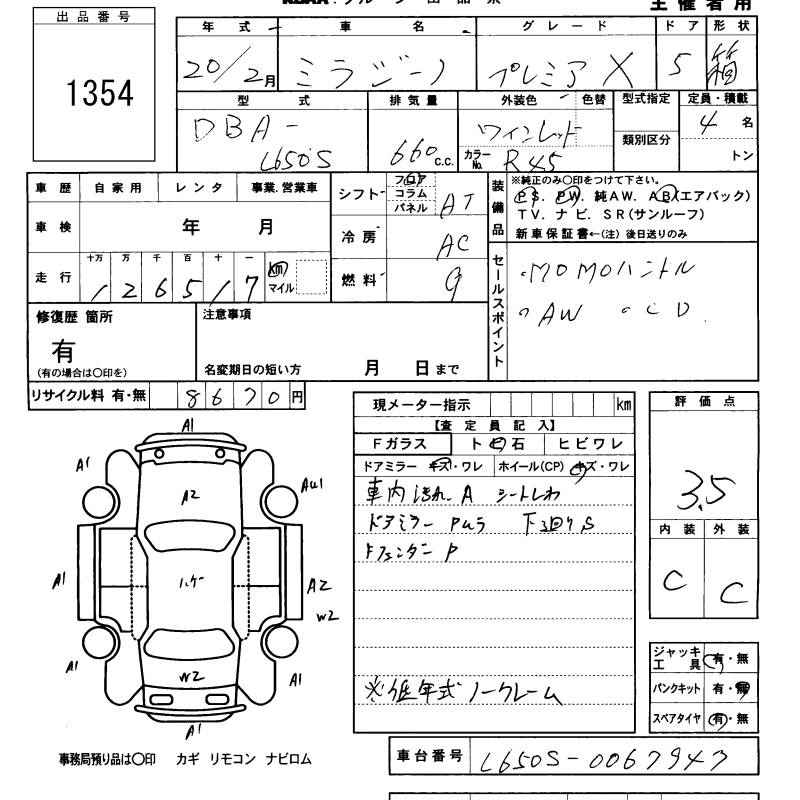 主催者用
出品番号
1354
年式 車名 グレード ドア 形状
20/2月 ミラジーノ プレミアX 5 箱
型式 排気量 外装色 色替 型式指定 定員・積載
DBA- 660 c.c. ワインレッド 4名
L650S カラーNo. R45 類別区分 トン
車歴 自家用 レンタ 事業.営業車
シフト フロア コラム パネル AT
装備品 ※純正のみ○印をつけて下さい。
PS. PW. 純AW. AB(エアバック)
TV. ナビ. SR(サンルーフ)
新車保証書←(注)後日送りのみ
車検 年 月
冷房 AC
走行 十万 万 千 百 十 一
126517 km マイル
燃料 G
セールスポイント
・MOMOハンドル
・AW ・CD
修復歴 箇所 注意事項
有
(有の場合は○印を) 名変期日の短い方 月 日まで
リサイクル料 有・無 8670円
現メーター指示 km
【査定員記入】
Fガラス トビ石 ヒビワレ
ドアミラー キズ・ワレ ホイール(CP) キズ・ワレ
車内汚れ A シートしわ
ドアミラー PWラ 下廻りS
Fフェンダー P
※低年式ノークレーム
評価点
3.5
内装 外装
C C
ジャッキ工具 有・無
パンクキット 有・無
スペアタイヤ 有・無
A1
A1
A2
AW1
A1
ハゲ
A2
W2
A1
W2
A1
A1
事務局預り品は○印 カギ リモコン ナビロム
車台番号 L650S-0067943